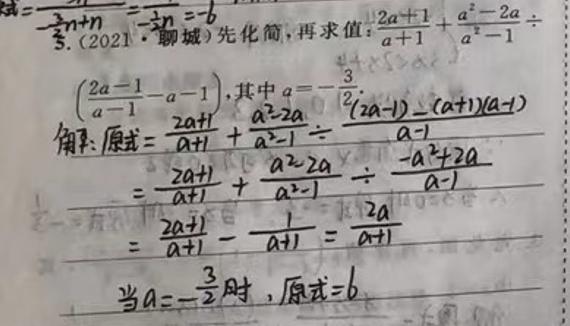 式=\frac{}{-\frac{2}{3}n+n}=\frac{}{-\frac{1}{3}n}=-6
3.(2021·聊城)先化简,再求值:\frac{2a+1}{a+1}+\frac{a^2-2a}{a^2-1}÷
(\frac{2a-1}{a-1}-a-1),其中a=-\frac{3}{2}.
解:原式=\frac{2a+1}{a+1}+\frac{a^2-2a}{a^2-1}÷\frac{(2a-1)-(a+1)(a-1)}{a-1}
=\frac{2a+1}{a+1}+\frac{a^2-2a}{a^2-1}÷\frac{-a^2+2a}{a-1}
=\frac{2a+1}{a+1}-\frac{1}{a+1}=\frac{2a}{a+1}
当a=-\frac{3}{2}时,原式=6